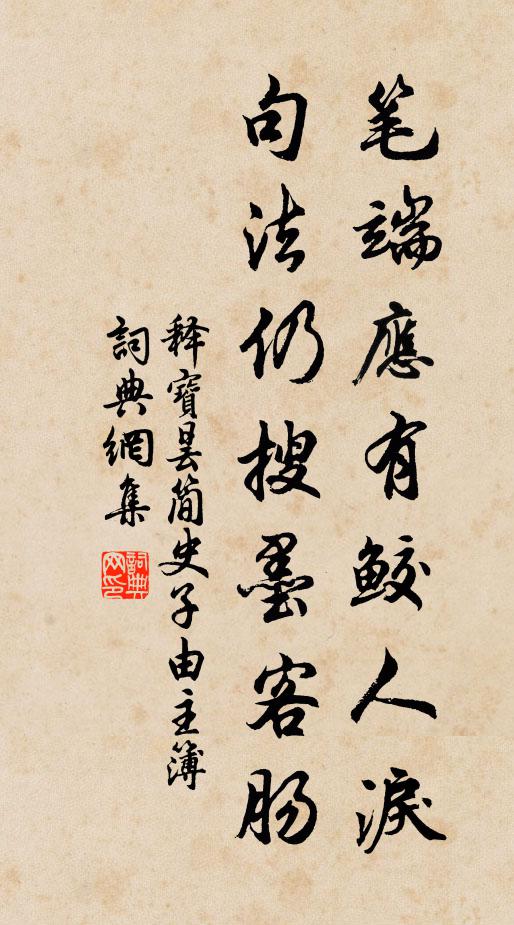 笔端應有鮫人淚
句法仍搜墨客肠
释寶曇簡史子由主簿
詞典網集
詞典
网印